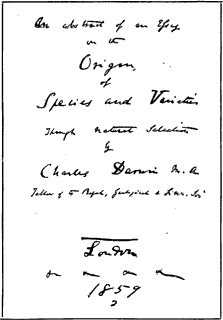 An abstract of an Essay
on the
Origin
of
Species and Varieties
Through Natural Selection
by
Charles Darwin M.A
Fellow of the Royal, Geological & Linn. Soc
London
1859